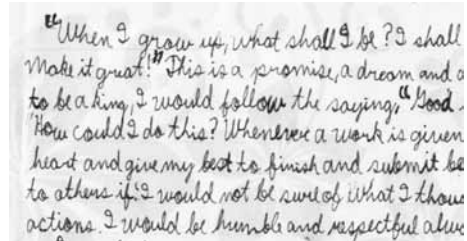 "When I grow up, what shall I be? I shall
make it great!" This is a promise, a dream and a
to be a king, I would follow the saying, "Good
"How could I do this? Whenever a work is given
heart and give my best to finish and submit be
to others if I would not be sure of what I thou
actions. I would be humble and respectful alwa